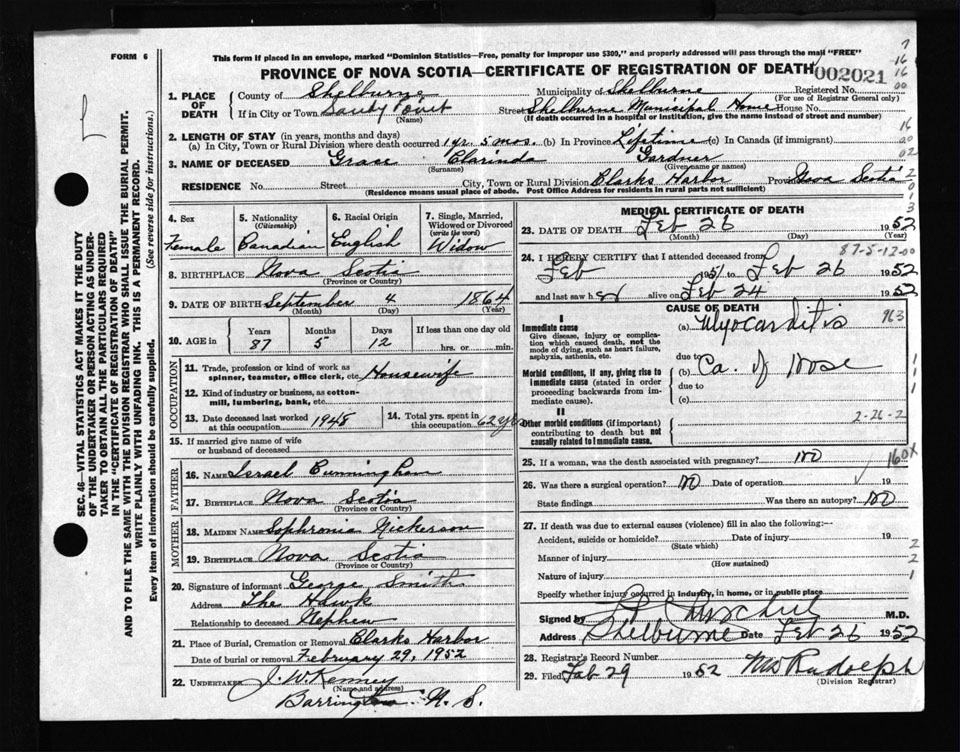 FORM 6
This form if placed in an envelope, marked "Dominion Statistics—Free, penalty for improper use $300," and properly addressed will pass through the mail "FREE"
PROVINCE OF NOVA SCOTIA—CERTIFICATE OF REGISTRATION OF DEATH
002021
1. PLACE OF DEATH
County of Shelburne Municipality of Shelburne Registered No.
(For use of Registrar General only)
If in City or Town Sandy Point Street Shelburne Municipal Home House No.
(Name) (If death occurred in a hospital or institution, give the name instead of street and number)
2. LENGTH OF STAY (in years, months and days)
(a) In City, Town or Rural Division where death occurred 1 yr. 5 mos. (b) In Province Lifetime (c) In Canada (if immigrant)
3. NAME OF DECEASED Grace Clarinda Gardner
(Surname) (Given name or names)
RESIDENCE No. Street City, Town or Rural Division Clarks Harbor Province Nova Scotia
(Residence means usual place of abode. Post Office Address for residents in rural parts not sufficient)
4. Sex Female
5. Nationality (Citizenship) Canadian
6. Racial Origin English
7. Single, Married, Widowed or Divorced (write the word) Widow
8. BIRTHPLACE Nova Scotia
(Province or Country)
9. DATE OF BIRTH September 4 1864
(Month) (Day) (Year)
10. AGE in Years 87 Months 5 Days 12 If less than one day old hrs. or min.
OCCUPATION
11. Trade, profession or kind of work as spinner, teamster, office clerk, etc. Housewife
12. Kind of industry or business, as cotton-mill, lumbering, bank, etc.
13. Date deceased last worked at this occupation 1948
14. Total yrs. spent in this occupation 62 yrs
15. If married give name of wife or husband of deceased
FATHER
16. NAME Israel Cunningham
17. BIRTHPLACE Nova Scotia
(Province or Country)
MOTHER
18. MAIDEN NAME Sophronia Nickerson
19. BIRTHPLACE Nova Scotia
(Province or Country)
20. Signature of informant George Smith
Address The Hawk
Relationship to deceased Nephew
21. Place of Burial, Cremation or Removal Clarks Harbor
Date of burial or removal February 29, 1952
22. UNDERTAKER J. W. Kenney
(Name and address)
Barrington N. S.
MEDICAL CERTIFICATE OF DEATH
23. DATE OF DEATH Feb 26 1952
(Month) (Day) (Year)
87-5-12-00
24. I HEREBY CERTIFY that I attended deceased from
Feb 1951 to Feb 26 1952
and last saw her alive on Feb 24 1952
CAUSE OF DEATH
I
Immediate cause
Give disease, injury or complication which caused death, not the mode of dying, such as heart failure, asphyxia, asthenia, etc.
(a) Myocarditis
due to
Morbid conditions, if any, giving rise to immediate cause (stated in order proceeding backwards from immediate cause).
(b) Ca. of nose
due to
(c)
II
Other morbid conditions (if important) contributing to death but not causally related to immediate cause.
2-26-2
25. If a woman, was the death associated with pregnancy? no
26. Was there a surgical operation? no Date of operation 19
State findings Was there an autopsy? no
27. If death was due to external causes (violence) fill in also the following:—
Accident, suicide or homicide? Date of injury 19
(State which)
Manner of injury
(How sustained)
Nature of injury
Specify whether injury occurred in industry, in home, or in public place
Signed by M.D.
Address Shelburne Date Feb 26 1952
28. Registrar's Record Number
29. Filed Feb 29 1952 Rudolph
(Division Registrar)
SEC. 46—VITAL STATISTICS ACT MAKES IT THE DUTY
OF THE UNDERTAKER OR PERSON ACTING AS UNDER-
TAKER TO OBTAIN ALL THE PARTICULARS REQUIRED
IN THE "CERTIFICATE OF REGISTRATION OF DEATH"
AND TO FILE THE SAME WITH THE DIVISION REGISTRAR WHO SHALL ISSUE THE BURIAL PERMIT.
WRITE PLAINLY WITH UNFADING INK. THIS IS A PERMANENT RECORD.
Every item of information should be carefully supplied.
(See reverse side for instructions.)